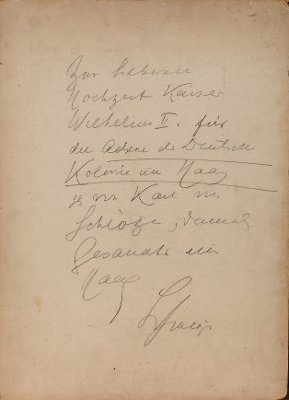 Zur silbernen
Hochzeit Kaiser
Wilhelms II. für
die Adresse der Deutsche
Kolonie im Haag
von Karl von
Schlözer, damals
Gesandte im
Haag